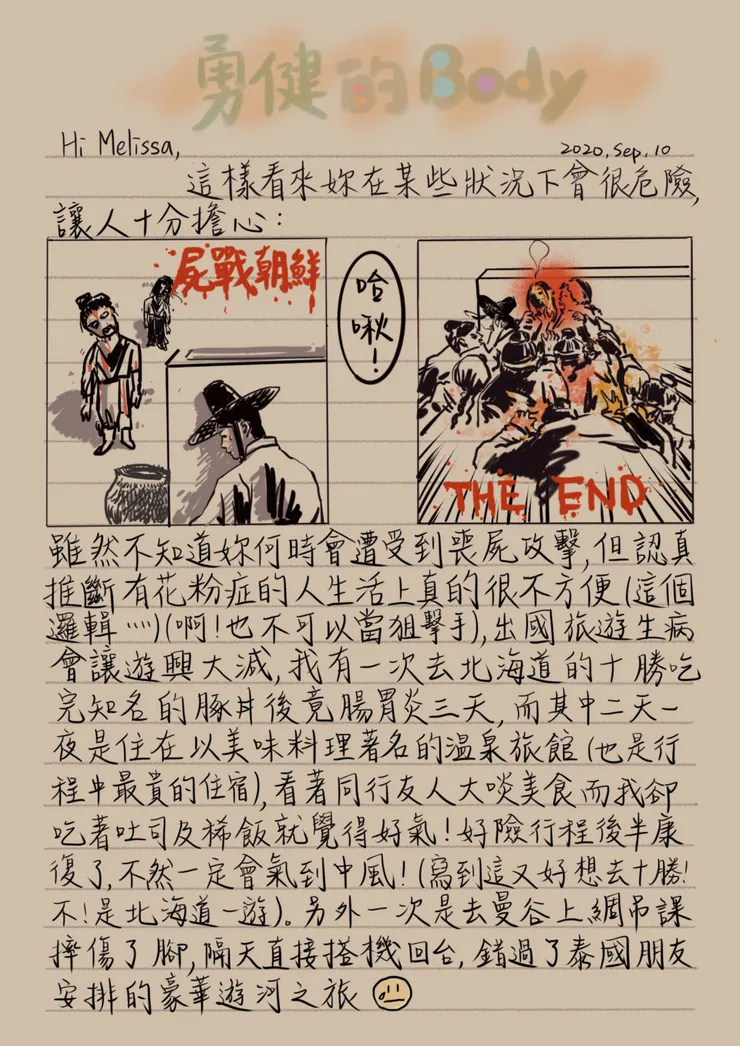 勇健的Body
Hi Melissa,
2020, Sep, 10
這樣看來妳在某些狀況下會很危險,
讓人十分擔心：
屍戰朝鮮
哈啾！
THE END
雖然不知道妳何時會遭受到喪屍攻擊,但認真
推斷有花粉症的人生活上真的很不方便(這個
邏輯⋯⋯)(啊!也不可以當狙擊手),出國旅遊生病
會讓遊興大減,我有一次去北海道的十勝吃
完知名的豚丼後竟腸胃炎三天,而其中二天一
夜是住在以美味料理著名的溫泉旅館(也是行
程中最貴的住宿),看著同行友人大啖美食而我卻
吃著吐司及稀飯就覺得好氣!好險行程後半康
復了,不然一定會氣到中風!(寫到這又好想去十勝!
不!是北海道一遊)。另外一次是去曼谷上綢吊課
摔傷了腳,隔天直接搭機回台,錯過了泰國朋友
安排的豪華遊河之旅